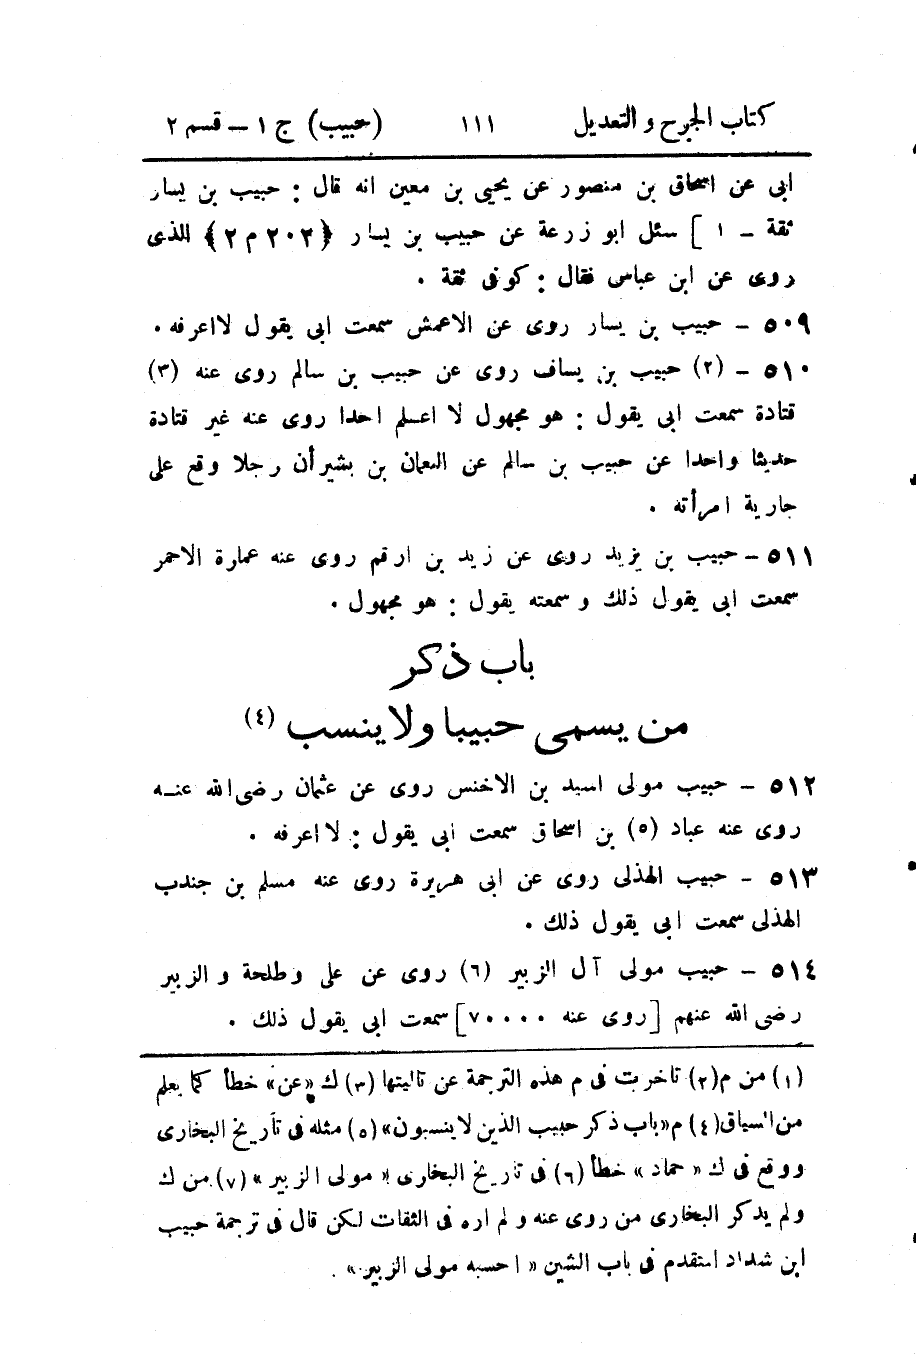 كتاب الجرح والتعديل ١١١ (حبيب) ج ١ – قسم ٢
ابى عن اسحاق بن منصور عن يحيى بن معين انه قال : حبيب بن يسار
ثقة – ١ ] سئل ابو زرعة عن حبيب بن يسار ﴿٢٠٢ م ٢﴾ الذى
روى عن ابن عباس فقال : كوفى ثقة .
٥٠٩ – حبيب بن يسار روى عن الاعمش سمعت ابى يقول لااعرفه .
٥١٠ – (٢) حبيب بن يساف روى عن حبيب بن سالم روى عنه (٣)
قتادة سمعت ابى يقول : هو مجهول لا اعلم احدا روى عنه غير قتادة
حديثا واحدا عن حبيب بن سالم عن النعمان بن بشيرأن رجلا وقع على
جارية امرأته .
٥١١ – حبيب بن يزيد روى عن زيد بن ارقم روى عنه عمارة الاحمر
سمعت ابى يقول ذلك و سمعته يقول : هو مجهول .
باب ذكر
من يسمى حبيبا ولا ينسب (٤)
٥١٢ – حبيب مولى اسيد بن الاخنس روى عن عثمان رضى الله عنه
روى عنه عباد (٥) بن اسحاق سمعت ابى يقول : لااعرفه .
٥١٣ – حبيب الهذلى روى عن ابى هريرة روى عنه مسلم بن جندب
الهذلى سمعت ابى يقول ذلك .
٥١٤ – حبيب مولى آل الزبير (٦) روى عن على وطلحة و الزبير
رضى الله عنهم [روى عنه ....٧] سمعت ابى يقول ذلك .
(١) من م(٢) تاخرت فى م هذه الترجمة عن تاليتها (٣) ك «عن» خطأ كما يعلم
من السياق(٤) م«باب ذكر حبيب الذين لاينسبون»(٥) مثله فى تأريخ البخارى
ووقع فى ك « حماد » خطأ (٦) فى تاريخ البخارى « مولى الزبير » (٧) من ك
ولم يذكر البخارى من روى عنه و لم اره فى الثقات لكن قال فى ترجمة حبيب
ابن شداد المتقدم فى باب الشين « احسبه مولى الزبير » .